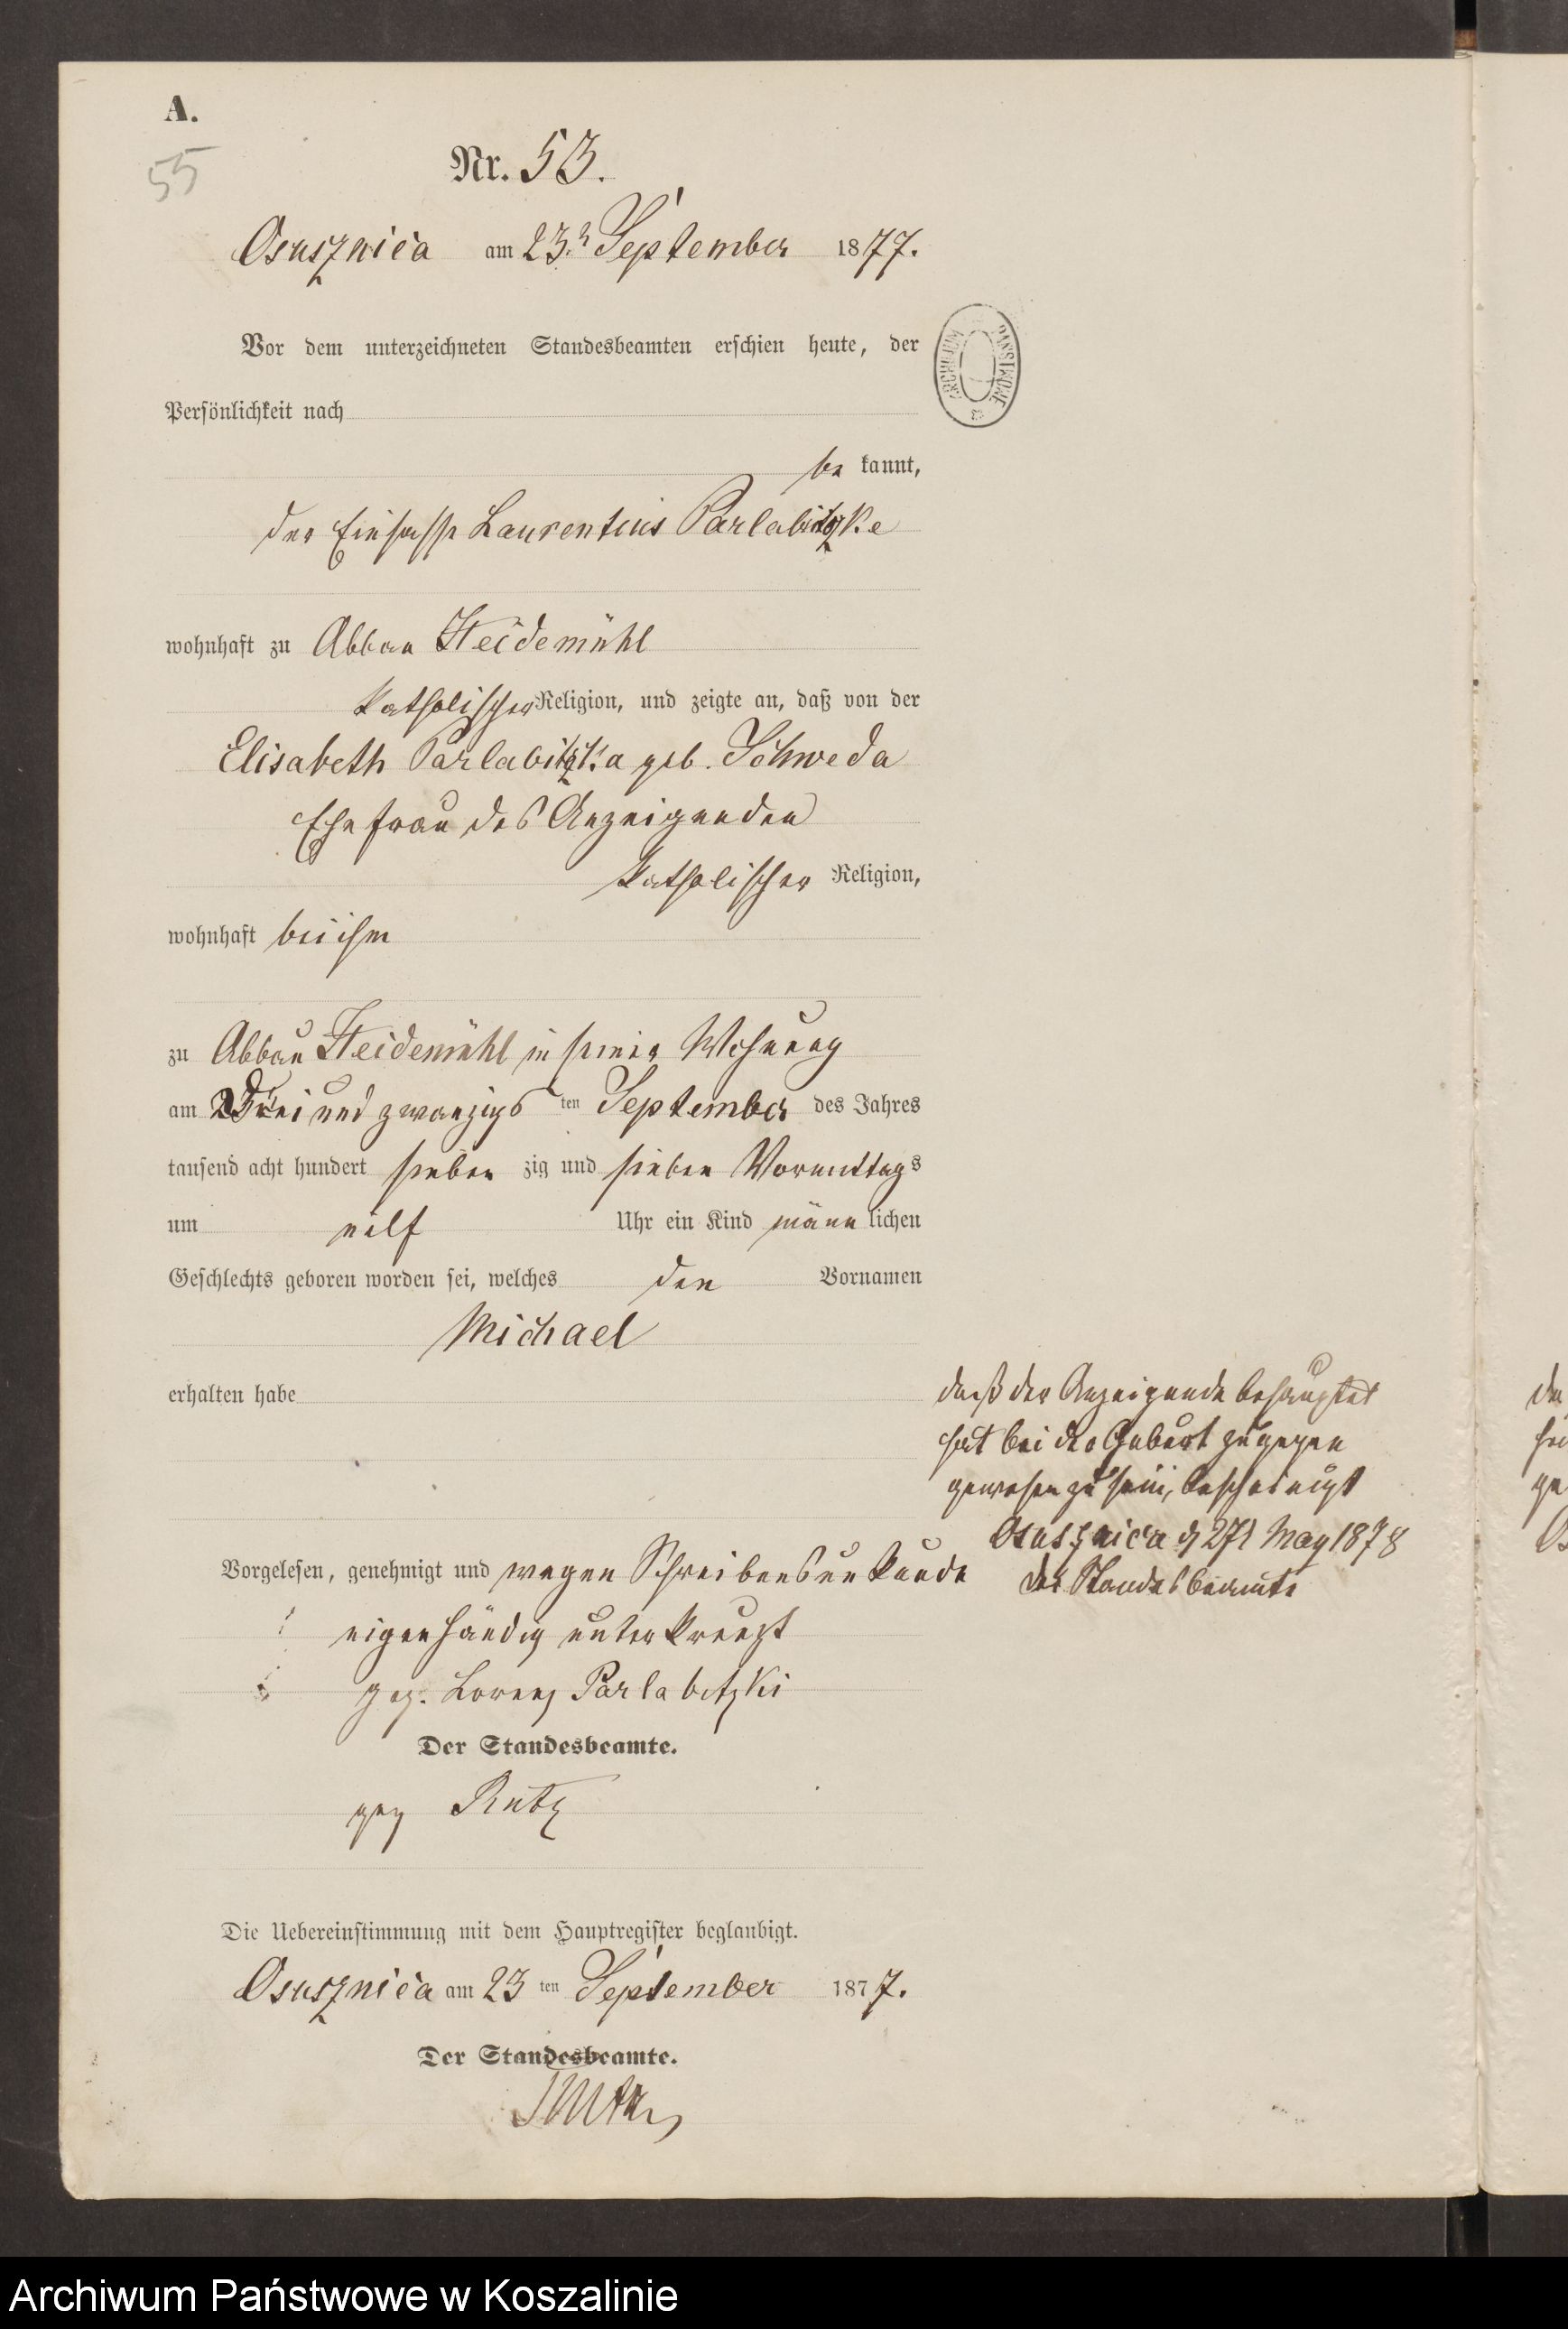 A.
55
Nr. 53.
Osusznica am 23. September 1877.
Vor dem unterzeichneten Standesbeamten erschien heute, der
Persönlichkeit nach
be kannt,
der Einsasse Laurentius Parlabitzke
wohnhaft zu Abbau Heidemühl
katholischer Religion, und zeigte an, daß von der
Elisabeth Parlabitzka geb. Schweda
Ehefrau des Anzeigenden
katholischer Religion,
wohnhaft bei ihm
zu Abbau Heidemühl in seiner Wohnung
am Drei und zwanzigs ten September des Jahres
tausend acht hundert sieben zig und sieben Vormittags
um eilf Uhr ein Kind männ lichen
Geschlechts geboren worden sei, welches den Vornamen
Michael
erhalten habe
daß der Anzeigende behauptet
hat bei der Geburt zugegen
gewesen zu sein, bescheinigt
Osusznica d 27t May 1878
der Standesbeamte
Vorgelesen, genehmigt und wegen Schreibensunkunde
eigenhändig unterkreuzt
gez. Lorenz Parlabitzki
Der Standesbeamte.
gez Rutz
Die Uebereinstimmung mit dem Hauptregister beglaubigt.
Osusznica am 23 ten September 1877.
Der Standesbeamte.
ARCHIWUM PAŃSTWOWE
Archiwum Państwowe w Koszalinie